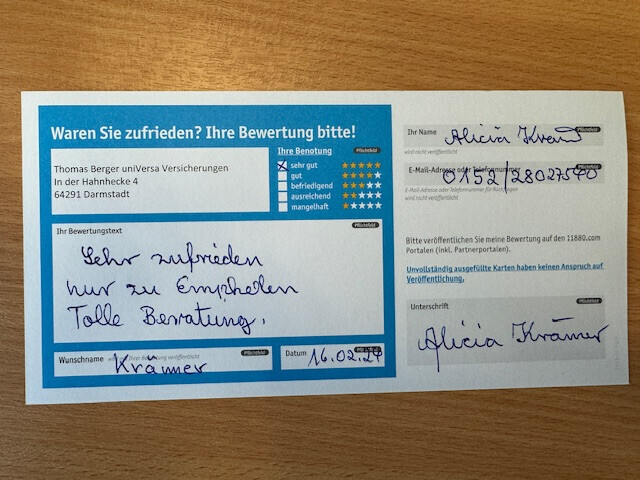 Waren Sie zufrieden? Ihre Bewertung bitte!
Thomas Berger uniVersa Versicherungen
In der Hahnhecke 4
64291 Darmstadt
Ihre Benotung Pflichtfeld
sehr gut
gut
befriedigend
ausreichend
mangelhaft
Ihr Bewertungstext Pflichtfeld
Sehr zufrieden
nur zu Emphelen
Tolle Beratung.
Wunschname wird mit Ihrer Bewertung veröffentlicht Pflichtfeld
Krämer
Datum Pflichtfeld
16.02.24
Ihr Name Pflichtfeld
Alicia
wird nicht veröffentlicht
E-Mail-Adresse oder Telefonnummer Pflichtfeld
0152/28027540
E-Mail-Adresse oder Telefonnummer für Rückfragen
wird nicht veröffentlicht
Bitte veröffentlichen Sie meine Bewertung auf den 11880.com
Portalen (inkl. Partnerportalen).
Unvollständig ausgefüllte Karten haben keinen Anspruch auf
Veröffentlichung.
Unterschrift Pflichtfeld
Alicia Krämer